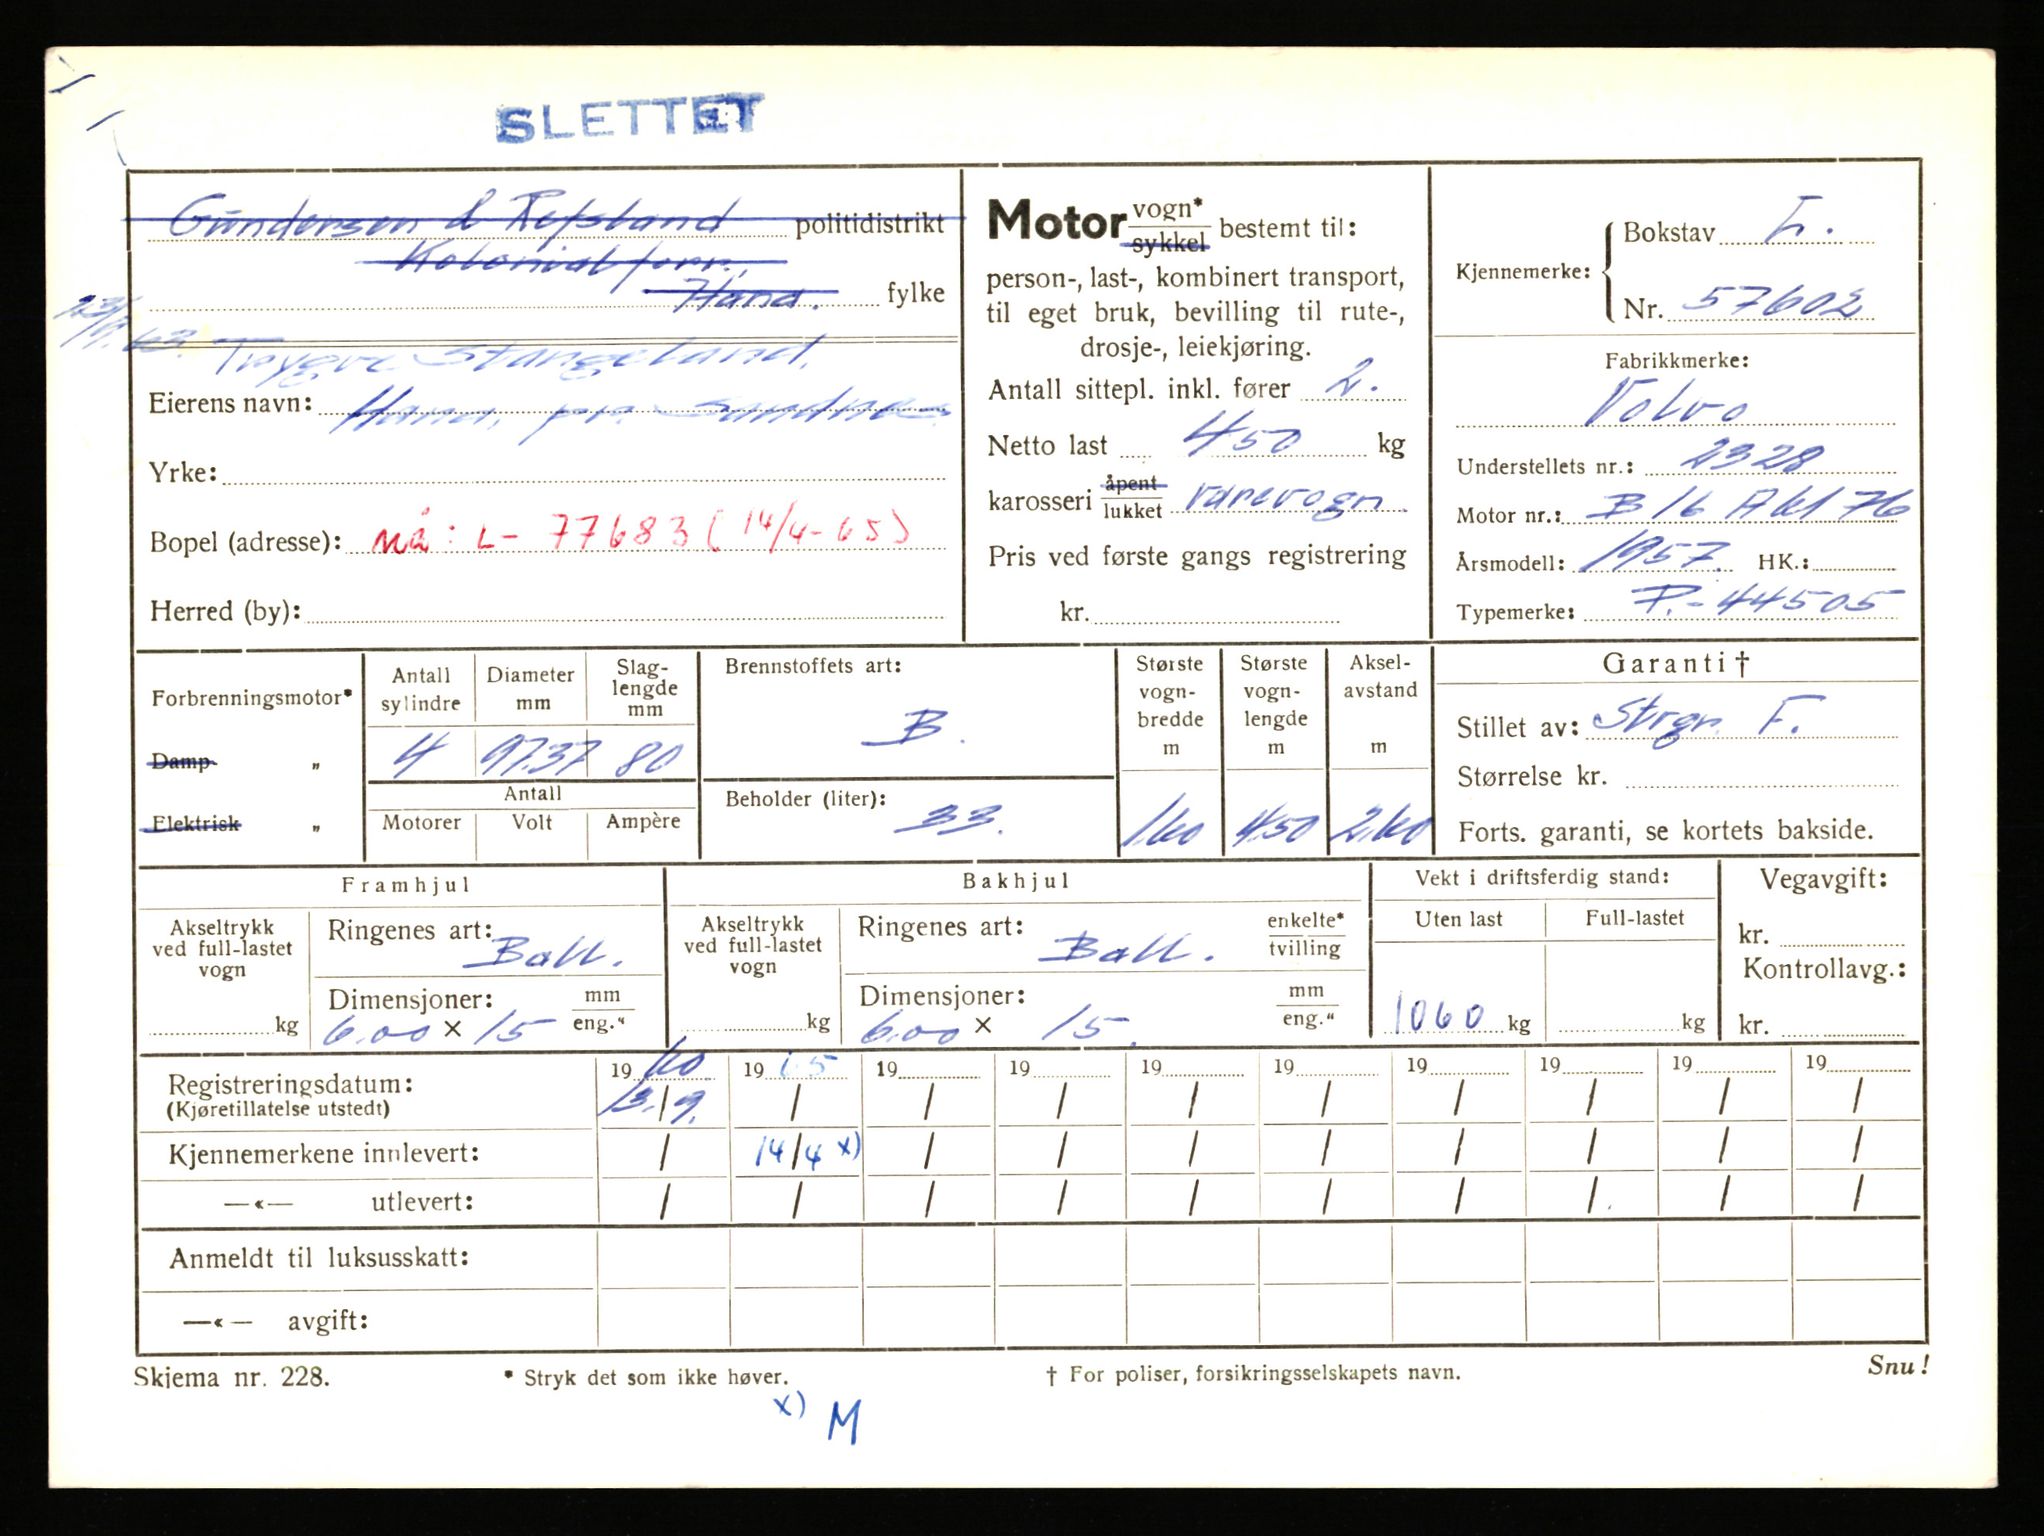 SLETTET
Gundersen & Refsland politidistrikt
Kolonialforr.,
Hana. fylke
Trygve Stangeland.
Eierens navn: Hana, pr. Sandnes
Yrke:
Bopel (adresse): nå: L - 77683 (14/4-65)
Herred (by):
Motor vogn* sykkel bestemt til:
person-, last-, kombinert transport,
til eget bruk, bevilling til rute-,
drosje-, leiekjøring.
Antall sittepl. inkl. fører 2.
Netto last 450 kg
karosseri åpent lukket Varevogn
Pris ved første gangs registrering
kr.
Kjennemerke: Bokstav L.
Nr. 57602
Fabrikkmerke:
Volvo
Understellets nr.: 2328
Motor nr.: B 16 A 6176
Årsmodell: 1957. HK.:
Typemerke: P.-44505
Forbrenningsmotor*
Damp "
Elektrisk "
Antall sylindre
Diameter mm
Slag-lengde mm
4 97.37 80
Antall
Motorer Volt Ampère
Brennstoffets art:
B.
Beholder (liter):
33.
Største vogn-bredde m
1.60
Største vogn-lengde m
4.50
Aksel-avstand m
2.60
Garanti †
Stillet av: Strgr. F.
Størrelse kr.
Forts. garanti, se kortets bakside.
Framhjul
Akseltrykk ved full-lastet vogn
kg
Ringenes art:
Ball.
Dimensjoner: mm
6.00 × 15 eng."
Bakhjul
Akseltrykk ved full-lastet vogn
kg
Ringenes art: enkelte*
Ball. tvilling
Dimensjoner: mm
6.00 × 15. eng."
Vekt i driftsferdig stand:
Uten last Full-lastet
1060 kg kg
Vegavgift:
kr.
Kontrollavg.:
kr.
19 60 19 65 19 19 19 19 19 19 19 19
Registreringsdatum: 13./9. / / / / / / / / /
(Kjøretillatelse utstedt)
Kjennemerkene innlevert: / 14/4 x) / / / / / / / /
—«— utlevert: / / / / / / / / / /
Anmeldt til luksusskatt:
—«— avgift:
Skjema nr. 228.
* Stryk det som ikke høver.
† For poliser, forsikringsselskapets navn.
Snu!
x) M